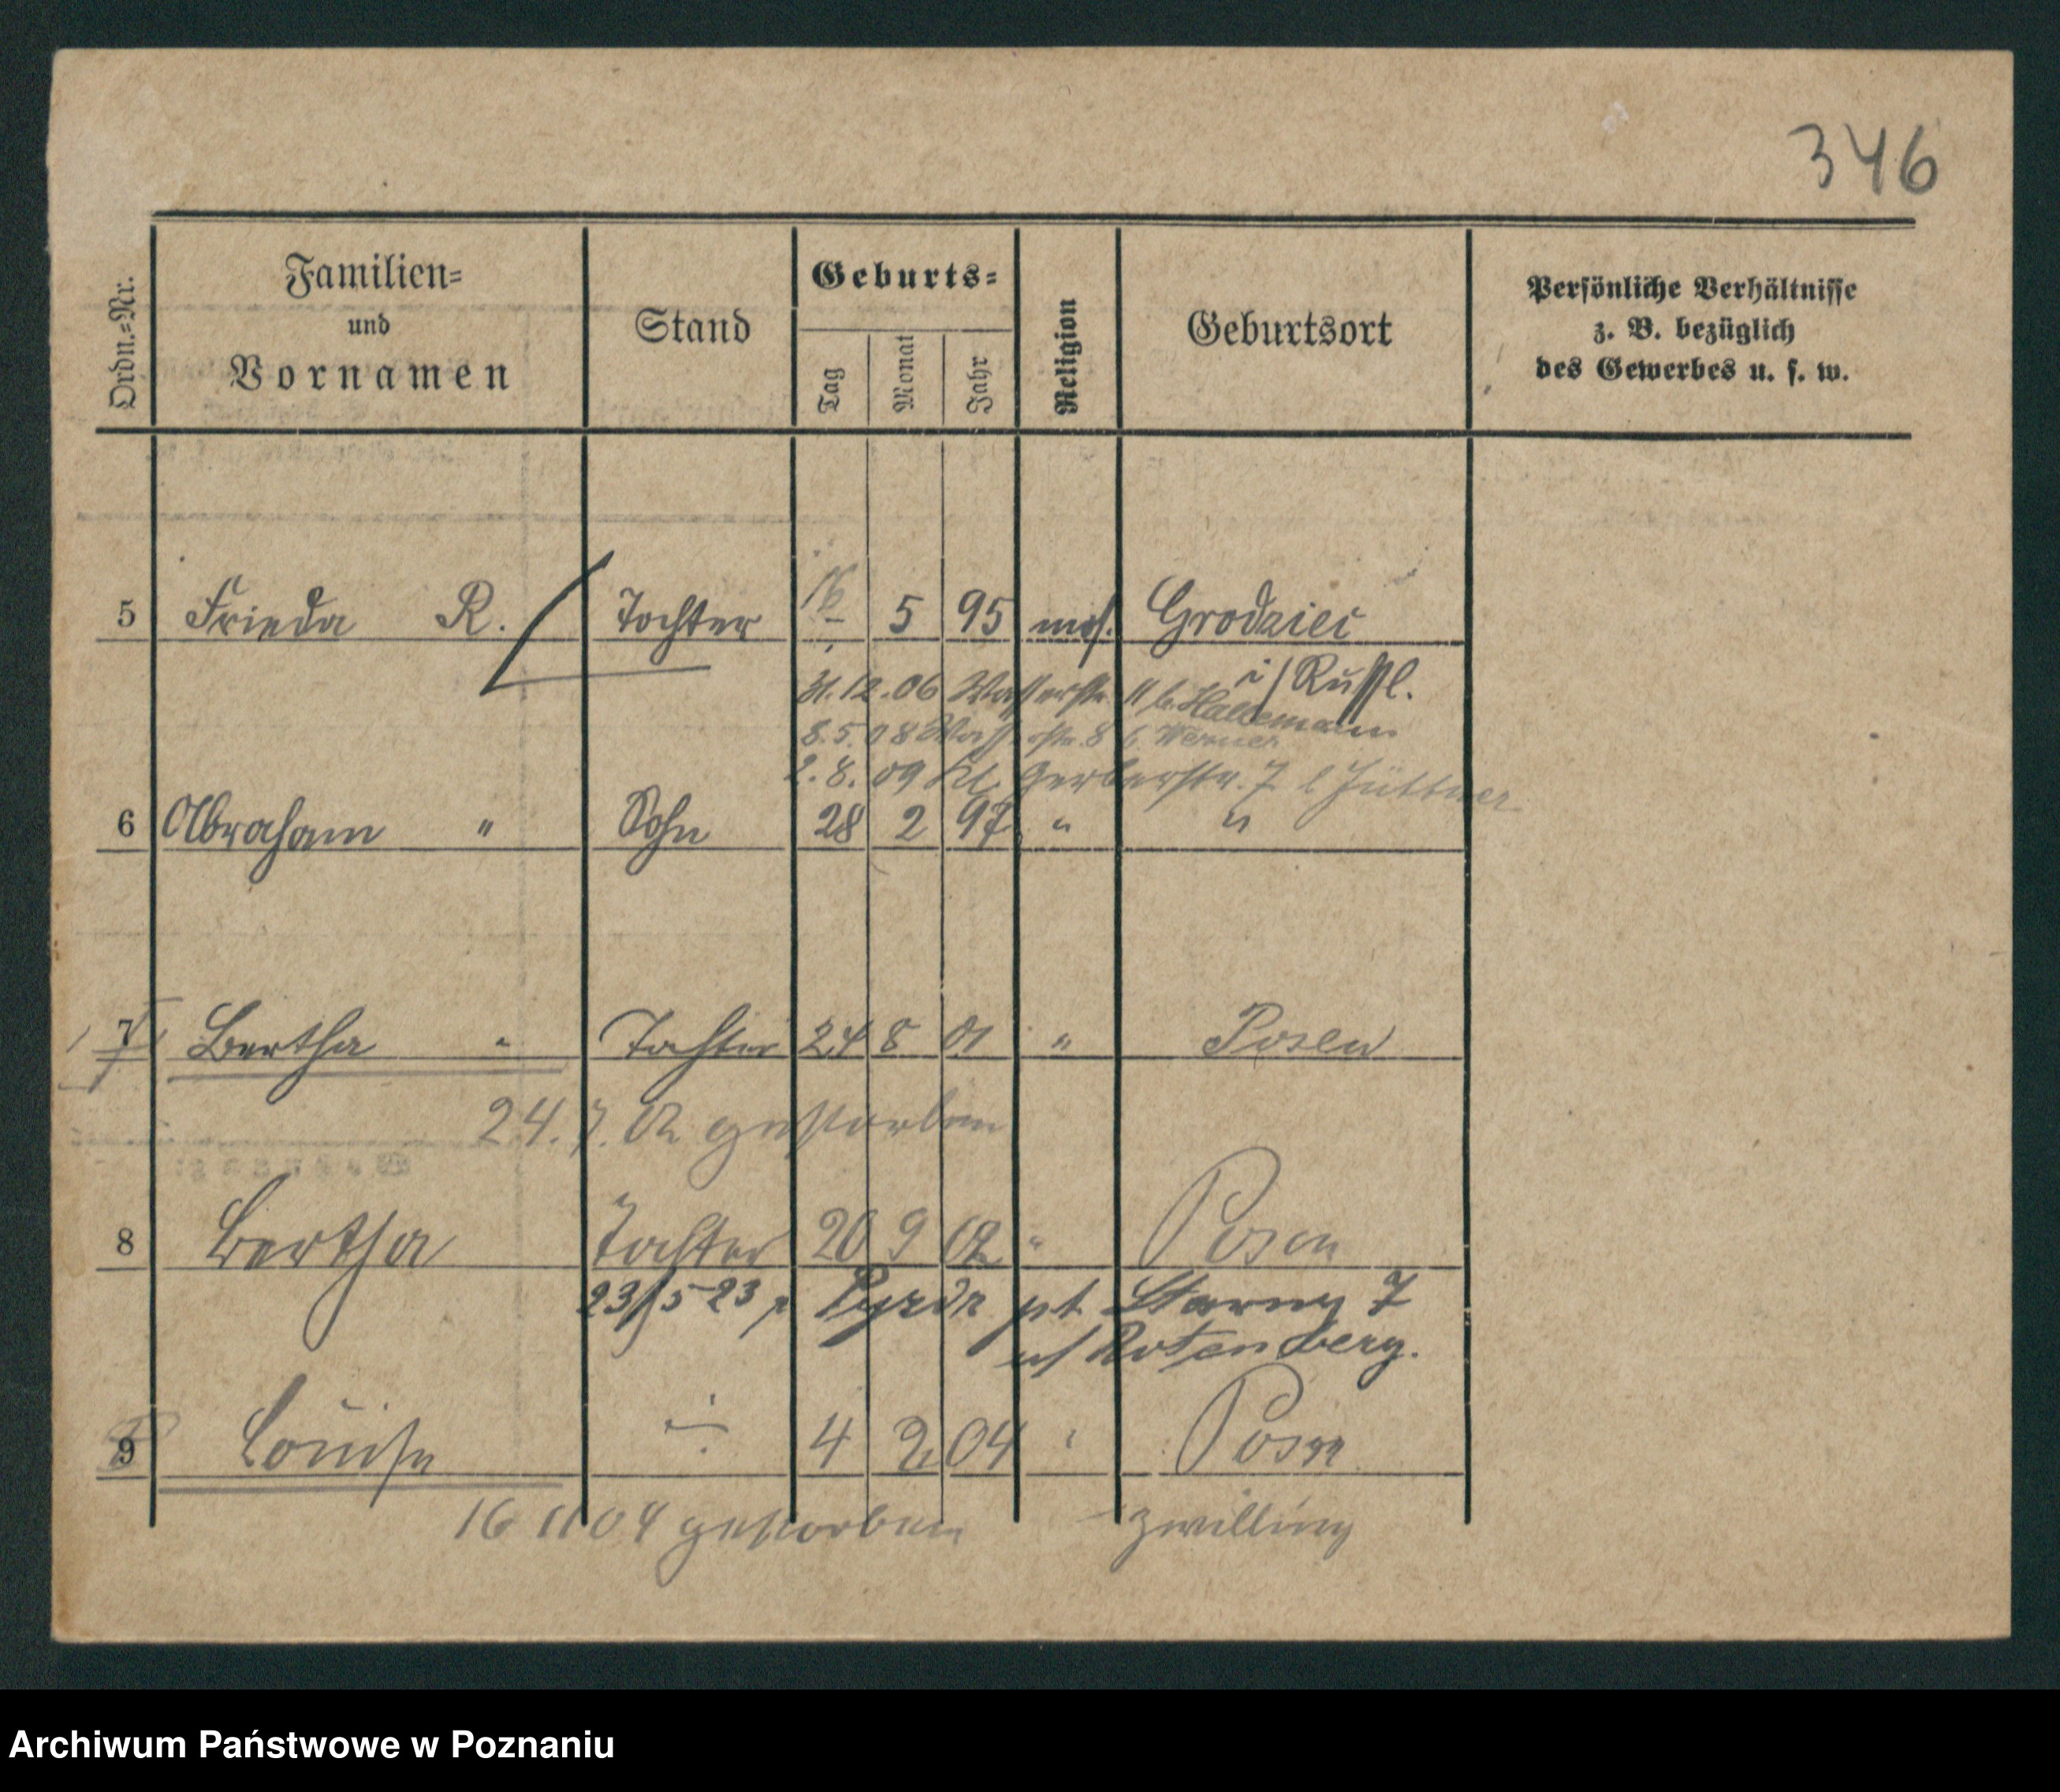 346
Ordn.=Nr. Familien= und Vornamen Stand Geburts= Tag Monat Jahr Religion Geburtsort Persönliche Verhältnisse z. B. bezüglich des Gewerbes u. s. w.
5 Frieda R. Tochter 16 5 95 mos. Grodziec
i/Rußl.
31.12.06 Wasserstr. 11 b. Hallemann
8.5.08 Wasserstr. 8 b. Werner
2.8.09 Kl. Gerberstr. 7 b Jüttner
6 Abraham " Sohn 28 2 97 " "
7 Bertha " Tochter 24 8 01 " Posen
24.7.02 gestorben
8 Bertha Tochter 20 9 02 " Posen
23/5 23 z Pyzdr pt Stawny 7
u/ Rotenberg.
9 Louise 4 2 04 " Posen
16 11 04 gestorben Zwilling
Archiwum Państwowe w Poznaniu